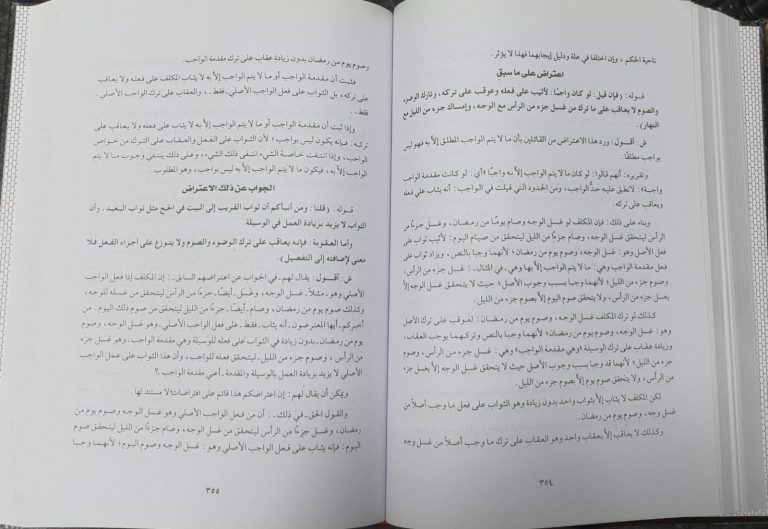 ناحية الحكم ، وإن اختلفا في علة ودليل إيجابهما فهذا لا يؤثر .
اعتراض على ما سبق
قوله : (فإن قيل : لو كان واجبًا : لأثيب على فعله وعوقب على تركه ، وتارك الوضوء
والصوم لا يعاقب على ما ترك من غسل جزء من الرأس مع الوجه ، وإمساك جزء من الليل مع
النهار) .
ش : أقول : ورد هذا الاعتراض من القائلين بأن ما لا يتم الواجب المطلق إلاَّ به فهو ليس
بواجب مطلقًا .
وتقريره : أنهم قالوا : لو كان ما لا يتم الواجب إلاَّ به واجبًا «أي : لو كانت مقدمة الواجب
واجبة» : لانطبق عليه حدُّ الواجب ، ومن الحدود التي قيلت في الواجب : أنه يثاب على فعله
ويعاقب على تركه .
وبناء على ذلك : فإن المكلف لو غسل الوجه وصام يومًا من رمضان ، وغسل جزءًا من
الرأس ليتحقق غسل الوجه ، وصام جزءًا من الليل ليتحقق من صيام اليوم : لأثيب ثواب على
فعل الأصل وهو : غسل الوجه ، وصوم يوم من رمضان ؛ لأنهما وجبا بالنص ، ويزاد ثواب على
فعل مقدمة الواجب وهي : ما لا يتم الواجب إلاَّ بها وهي ـ في المثال ـ : غسل جزء من الرأس ،
وصوم جزء من الليل ؛ لأنهما وجبا بسبب وجوب الأصل ؛ حيث لا يتحقق غسل الوجه إلاَّ
بغسل جزء من الرأس ، ولا يتحقق صوم اليوم إلاَّ بصوم جزء من الليل .
كذلك لو ترك المكلف غسل الوجه ، وصوم يوم من رمضان : لعوقب على ترك الأصل
وهو : غسل الوجه ، وصوم يوم من رمضان ؛ لأنهما وجبا بالنص وتركهما يوجب العقاب ،
وزيادة عقاب على ترك الوسيلة «وهي مقدمة الواجب» وهي : غسل جزء من الرأس ، وصوم
جزء من الليل ؛ لأنهما قد وجبا بسبب وجوب الأصل حيث لا يتحقق غسل الوجه إلاَّ بغسل جزء
من الرأس ، ولا يتحقق صوم يوم إلاَّ بصوم جزء من الليل .
لكن المكلف لا يثاب إلاَّ بثواب واحد بدون زيادة وهو الثواب على فعل ما وجب أصلاً من
غسل وجه ، وصوم يوم من رمضان .
وكذلك لا يعاقب إلاَّ بعقاب واحد وهو العقاب على ترك ما وجب أصلاً من غسل وجه
٣٥٤
وصوم يوم من رمضان بدون زيادة عقاب على ترك مقدمة الواجب .
فثبت أن مقدمة الواجب أو ما لا يتم الواجب إلاَّ به لا يثاب المكلف على فعله ولا يعاقب
على تركه ، بل الثواب على فعل الواجب الأصلي ـ فقط ـ ، والعقاب على ترك الواجب الأصلي .
فقط ـ .
وإذا ثبت أن مقدمة الواجب أو ما لا يتم الواجب إلاَّ به لا يثاب على فعله ولا يعاقب على
تركه : فإنه يكون ليس بواجب ؛ لأن الثواب على الفعل والعقاب على الترك من خواص
الواجب ، وإذا انتفت خاصة الشيء انتفى ذلك الشيء ، وعلى ذلك ينتفي وجوب ما لا يتم
الواجب إلاَّ به ، فيكون ما لا يتم الواجب إلاَّ به ليس بواجب ، وهو المطلوب .
الجواب عن ذلك الاعتراض
قوله : (قلنا : ومن أنبأكم أن ثواب القريب إلى البيت في الحج مثل ثواب البعيد ، وأن
الثواب لا يزيد بزيادة العمل في الوسيلة .
وأما العقوبة : فإنه يعاقب على ترك الوضوء والصوم ولا يتوزع على أجزاء الفعل فلا
معنى لإضافته إلى التفصيل) .
ش : أقول : يقال لهم ـ في الجواب عن اعتراضهم السابق ـ : إن المكلف إذا فعل الواجب
الأصلي وهو ـ مثلاً ـ غسل الوجه ، وغسل ـ أيضًا ـ جزءًا من الرأس ليتحقق من غسله للوجه ،
وكذلك صوم يوم من رمضان ، وصام ـ أيضًا ـ جزءًا من الليل ليتحقق من صوم ذلك اليوم : من
أخبركم ـ أيها المعترضون ـ أنه يثاب ـ فقط ـ على فعل الواجب الأصلي ـ وهو غسل الوجه ،
وصوم يوم من رمضان ـ بدون زيادة في الثواب على فعله للوسيلة وهي مقدمة الواجب ـ وهو غسل جزء
من الرأس ، وصوم جزء من الليل ـ ليتحقق فعله للواجب ، وأن هذا الثواب على عمل الواجب
الأصلي لا يزيد بزيادة العمل بالوسيلة والمقدمة ـ أعني مقدمة الواجب ـ ؟
ويمكن أن يقال لهم : إن اعتراضكم هذا قائم على افتراضات لا مستند لها .
والقول الحق ـ في ذلك ـ : أن من فعل الواجب الأصلي وهو غسل الوجه وصوم يوم من
رمضان ، وغسل جزءًا من الرأس ليتحقق من غسل الوجه ، وصام جزءًا من الليل ليتحقق صوم
اليوم : فإنه يثاب على فعل الواجب الأصلي وهو : غسل الوجه وصوم اليوم ؛ لأنهما وجبا
٣٥٥